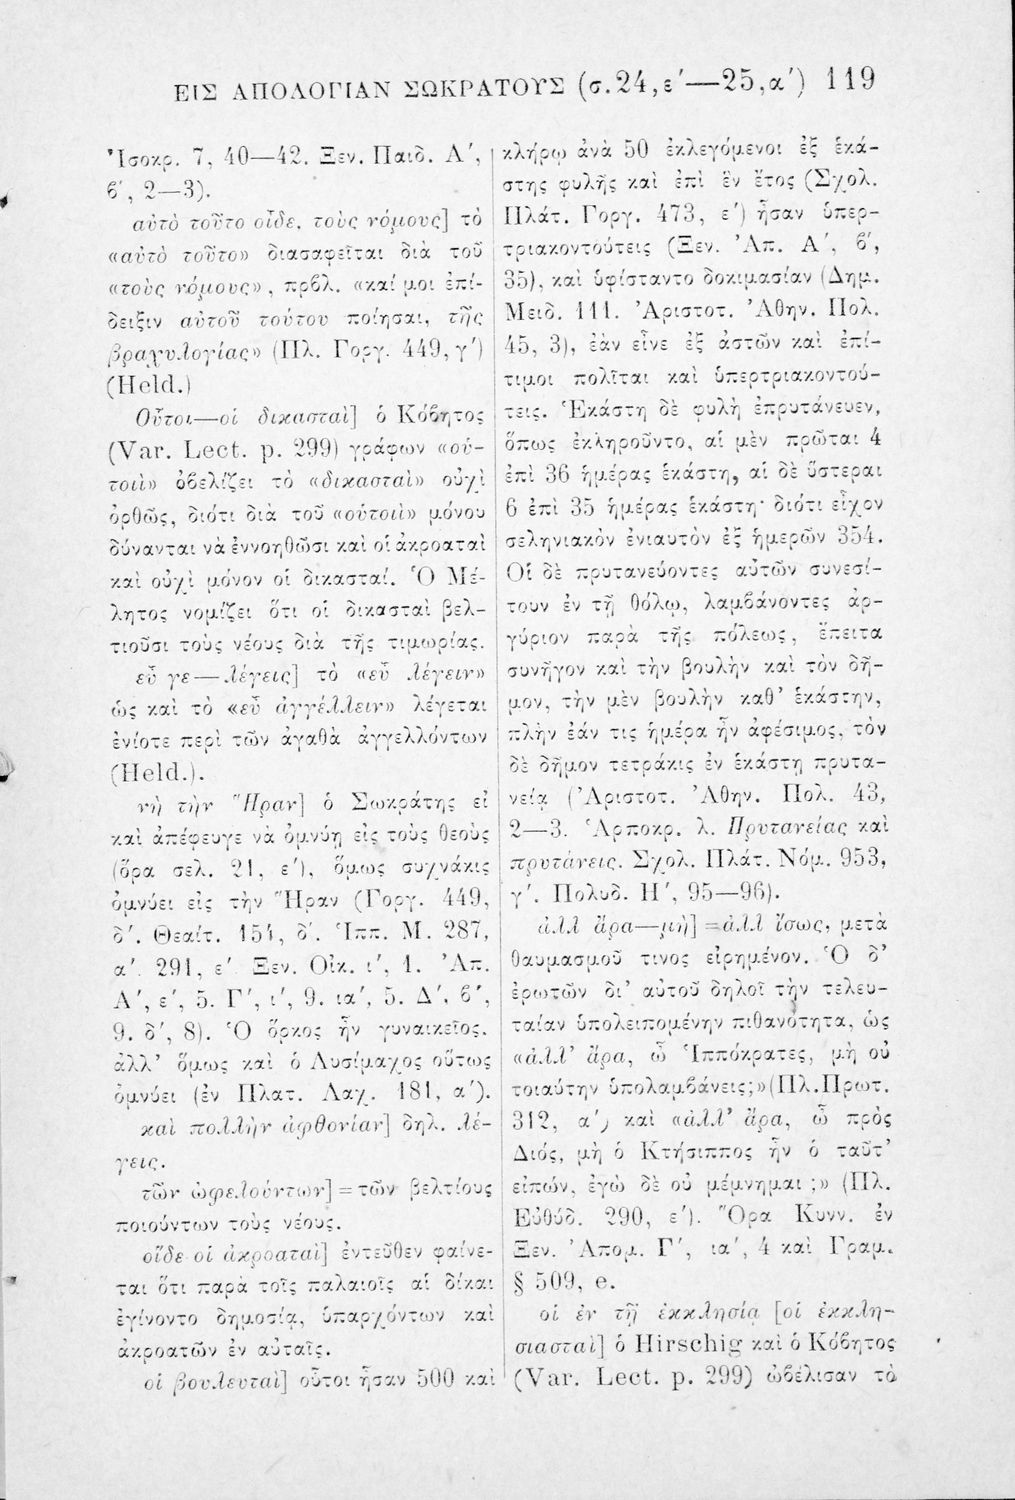 ΕΙΣ ΑΠΟΛΟΓΙΑΝ ΣΩΚΡΑΤΟΥΣ (σ.24,ε΄—25,α΄) 119
Ἰσοκρ. 7, 40—42. Ξεν. Παιδ. Α΄,
β΄, 2—3).
αὐτὸ τοῦτο οἶδε, τοὺς νόμους] τὸ
«αὐτὸ τοῦτο» διασαφεῖται διὰ τοῦ
«τοὺς νόμους», πρβλ. «καί μοι ἐπί-
δειξιν αὐτοῦ τούτου ποίησαι, τῆς
βραχυλογίας» (Πλ. Γοργ. 449, γ΄)
(Held.)
Οὗτοι—οἱ δικασταὶ] ὁ Κόβητος
(Var. Lect. p. 299) γράφων «οὑ-
τοιὶ» ὀβελίζει τὸ «δικασταὶ» οὐχὶ
ὀρθῶς, διότι διὰ τοῦ «οὑτοιὶ» μόνου
δύνανται νὰ ἐννοηθῶσι καὶ οἱ ἀκροαταὶ
καὶ οὐχὶ μόνον οἱ δικασταί. Ὁ Μέ-
λητος νομίζει ὅτι οἱ δικασταὶ βελ-
τιοῦσι τοὺς νέους διὰ τῆς τιμωρίας.
εὖ γε—λέγεις] τὸ «εὖ λέγειν»
ὡς καὶ τὸ «εὖ ἀγγέλλειν» λέγεται
ἐνίοτε περὶ τῶν ἀγαθὰ ἀγγελλόντων
(Held.).
νὴ τὴν Ἥραν] ὁ Σωκράτης εἰ
καὶ ἀπέφευγε νὰ ὀμνύῃ εἰς τοὺς θεοὺς
(ὅρα σελ. 21, ε΄), ὅμως συχνάκις
ὀμνύει εἰς τὴν Ἥραν (Γοργ. 449,
δ΄. Θεαίτ. 154, δ΄. Ἱππ. Μ. 287,
α΄. 291, ε΄ Ξεν. Οἰκ. ι΄, 1. Ἀπ.
Α΄, ε΄, 5. Γ΄, ι΄, 9. ια΄, 5. Δ΄, β΄,
9. δ΄, 8). Ὁ ὅρκος ἦν γυναικεῖος.
ἀλλ’ ὅμως καὶ ὁ Λυσίμαχος οὕτως
ὀμνύει (ἐν Πλατ. Λαχ. 181, α΄).
καὶ πολλὴν ἀφθονίαν] δηλ. λέ-
γεις.
τῶν ὠφελούντων] = τῶν βελτίους
ποιούντων τοὺς νέους.
οἵδε οἱ ἀκροαταὶ] ἐντεῦθεν φαίνε-
ται ὅτι παρὰ τοῖς παλαιοῖς αἱ δίκαι
ἐγίνοντο δημοσίᾳ, ὑπαρχόντων καὶ
ἀκροατῶν ἐν αὐταῖς.
οἱ βουλευταὶ] οὗτοι ἦσαν 500 καὶ
κλήρῳ ἀνὰ 50 ἐκλεγόμενοι ἐξ ἑκά-
στης φυλῆς καὶ ἐπὶ ἓν ἔτος (Σχολ.
Πλάτ. Γοργ. 473, ε΄) ἦσαν ὑπερ-
τριακοντούτεις (Ξεν. Ἀπ. Α΄, β΄,
35), καὶ ὑφίσταντο δοκιμασίαν (Δημ.
Μειδ. 111. Ἀριστοτ. Ἀθην. Πολ.
45, 3), ἐὰν εἶνε ἐξ ἀστῶν καὶ ἐπί-
τιμοι πολῖται καὶ ὑπερτριακοντού-
τεις. Ἑκάστη δὲ φυλὴ ἐπρυτάνευεν,
ὅπως ἐκληροῦντο, αἱ μὲν πρῶται 4
ἐπὶ 36 ἡμέρας ἑκάστη, αἱ δὲ ὕστεραι
6 ἐπὶ 35 ἡμέρας ἑκάστη· διότι εἶχον
σεληνιακὸν ἐνιαυτὸν ἐξ ἡμερῶν 354.
Οἱ δὲ πρυτανεύοντες αὐτῶν συνεσί-
τουν ἐν τῇ θόλῳ, λαμβάνοντες ἀρ-
γύριον παρὰ τῆς πόλεως, ἔπειτα
συνῆγον καὶ τὴν βουλὴν καὶ τὸν δῆ-
μον, τὴν μὲν βουλὴν καθ’ ἑκάστην,
πλὴν ἐάν τις ἡμέρα ἦν ἀφέσιμος, τὸν
δὲ δῆμον τετράκις ἐν ἑκάστῃ πρυτα-
νείᾳ (Ἀριστοτ. Ἀθην. Πολ. 43,
2—3. Ἁρποκρ. λ. Πρυτανείας καὶ
πρυτάνεις. Σχολ. Πλάτ. Νόμ. 953,
γ΄. Πολυδ. Η΄, 95—96).
ἀλλ ἄρα—μὴ] =ἀλλ ἴσως, μετὰ
θαυμασμοῦ τινος εἰρημένον. Ὁ δ’
ἐρωτῶν δι’ αὐτοῦ δηλοῖ τὴν τελευ-
ταίαν ὑπολειπομένην πιθανότητα, ὡς
«ἀλλ’ ἄρα, ὦ Ἱππόκρατες, μὴ οὐ
τοιαύτην ὑπολαμβάνεις;»(Πλ.Πρωτ.
312, α΄) καὶ «ἀλλ’ ἄρα, ὦ πρὸς
Διός, μὴ ὁ Κτήσιππος ἦν ὁ ταῦτ’
εἰπών, ἐγὼ δὲ οὐ μέμνημαι ;» (Πλ.
Εὐθύδ. 290, ε΄). Ὅρα Κυνν. ἐν
Ξεν. Ἀπομ. Γ΄, ια΄, 4 καὶ Γραμ.
§ 509, e.
οἱ ἐν τῇ ἐκκλησίᾳ [οἱ ἐκκλη-
σιασταὶ] ὁ Hirschig καὶ ὁ Κόβητος
(Var. Lect. p. 299) ὠβέλισαν τὸ